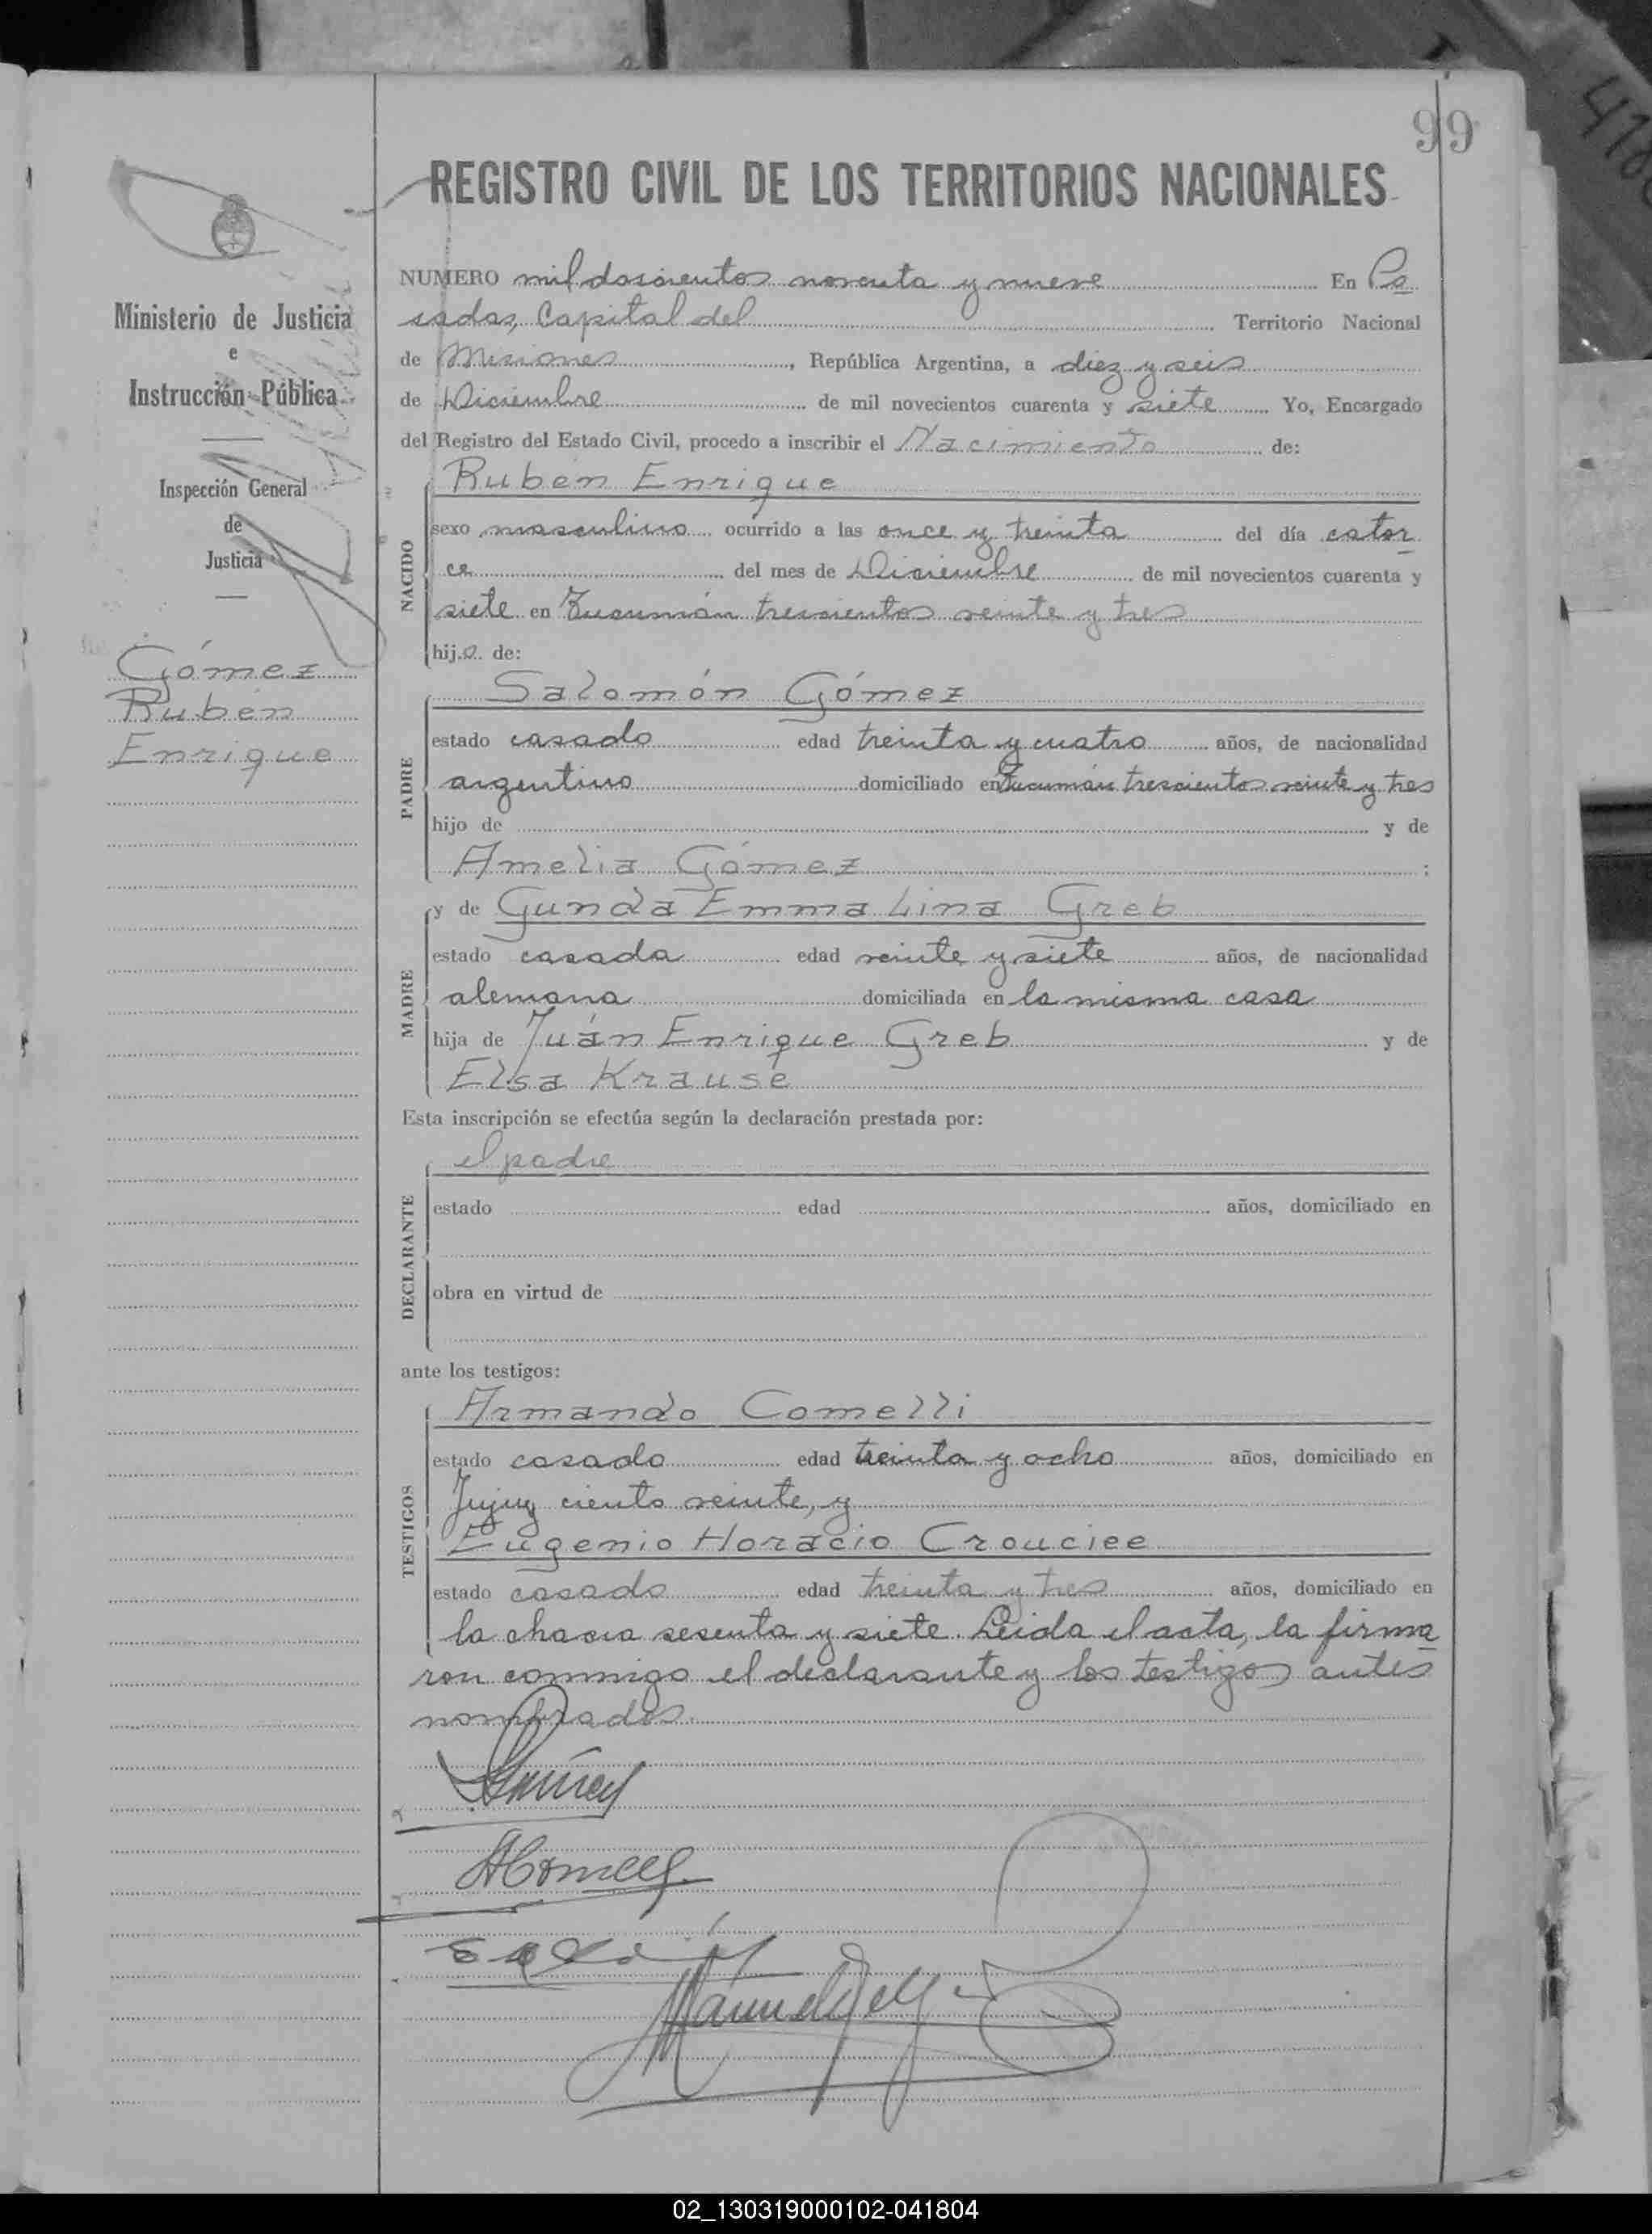 99
REGISTRO CIVIL DE LOS TERRITORIOS NACIONALES
Ministerio de Justicia
e
Instrucción Pública
Inspección General
de
Justicia
Gómez
Rubén
Enrique
NUMERO mil doscientos noventa y nueve En Po
sadas, Capital del Territorio Nacional
de Misiones, República Argentina, a diez y seis
de Diciembre de mil novecientos cuarenta y siete Yo, Encargado
del Registro del Estado Civil, procedo a inscribir el Nacimiento de:
Rubén Enrique
NACIDO
sexo masculino ocurrido a las once y treinta del día cator
ce del mes de Diciembre de mil novecientos cuarenta y
siete en Tucumán trescientos veinte y tres
hij.o. de:
Salomón Gómez
PADRE
estado casado edad treinta y cuatro años, de nacionalidad
argentino domiciliado en Tucumán trescientos veinte y tres
hijo de y de
Amelia Gómez :
y de Gunda Emma Lina Greb
MADRE
estado casada edad veinte y siete años, de nacionalidad
alemana domiciliada en la misma casa
hija de Juán Enrique Greb y de
Elsa Krause
Esta inscripción se efectúa según la declaración prestada por:
el padre
DECLARANTE
estado edad años, domiciliado en
obra en virtud de
ante los testigos:
Armando Comelli
TESTIGOS
estado casado edad treinta y ocho años, domiciliado en
Jujuy ciento veinte, y
Eugenio Horacio Crouciee
estado casado edad treinta y tres años, domiciliado en
la chacra sesenta y siete. Leida el acta, la firma
ron conmigo el declarante y los testigos antes
nombrados.
02_130319000102-041804